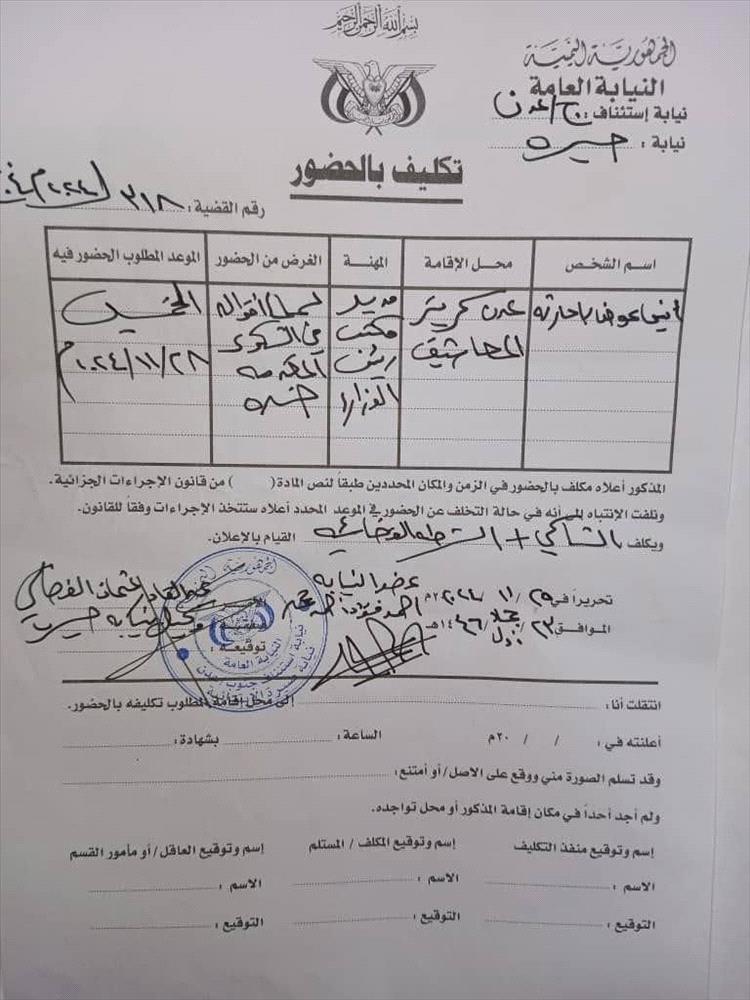 بسم الله الرحمن الرحيم
الجمهورية اليمنية
النيابة العامة
نيابة إستئناف : ج/عدن
نيابة : صيره
تكليف بالحضور
رقم القضية : ٣١٨ / ٢٠٢٤م
اسم الشخص
محل الإقامة
المهنة
الغرض من الحضور
الموعد المطلوب الحضور فيه
أنيس عوض باحارثه
عدن كريتر
المعاشيق
مدير
مكتب
رئيس
الوزراء
لسماع أقواله
في الشكوى
المقدمة
ضده
الخميس
٢٠٢٤/١١/٢٨م
المذكور أعلاه مكلف بالحضور في الزمن والمكان المحددين طبقاً لنص المادة ( ) من قانون الإجراءات الجزائية.
وتلفت الإنتباه إلى أنه في حالة التخلف عن الحضور في الموعد المحدد أعلاه ستتخذ الإجراءات وفقاً للقانون.
ويكلف الشاكي + الشرطة القضائية القيام بالإعلان.
تحريراً في / ١١ / ٢٠٢٤م
عضو النيابة
الموافق / ٢٣ / / ١٤٤٦هـ
وكيل نيابة صيره
توقيعه :
الجمهورية اليمنية
النيابة العامة
نيابة إستئناف جنوب عدن
انتقلت أنا : إلى محل إقامة المطلوب تكليفه بالحضور.
أعلنته في : / / ٢٠م الساعة : بشهادة :
وقد تسلم الصورة مني ووقع على الاصل/ أو أمتنع :
ولم أجد أحداً في مكان إقامة المذكور أو محل تواجده.
إسم وتوقيع منفذ التكليف
إسم وتوقيع المكلف / المستلم
إسم وتوقيع العاقل/ أو مأمور القسم
الاسم :
الاسم :
الاسم :
التوقيع :
التوقيع :
التوقيع :